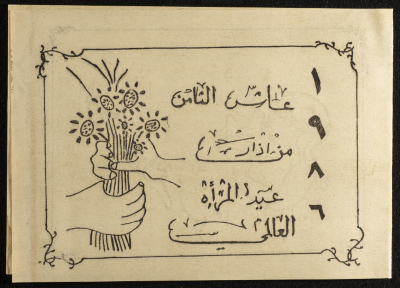 عاش الثامن
من اذار
عيد المرأة
العالمي
١
٩
٨
٦